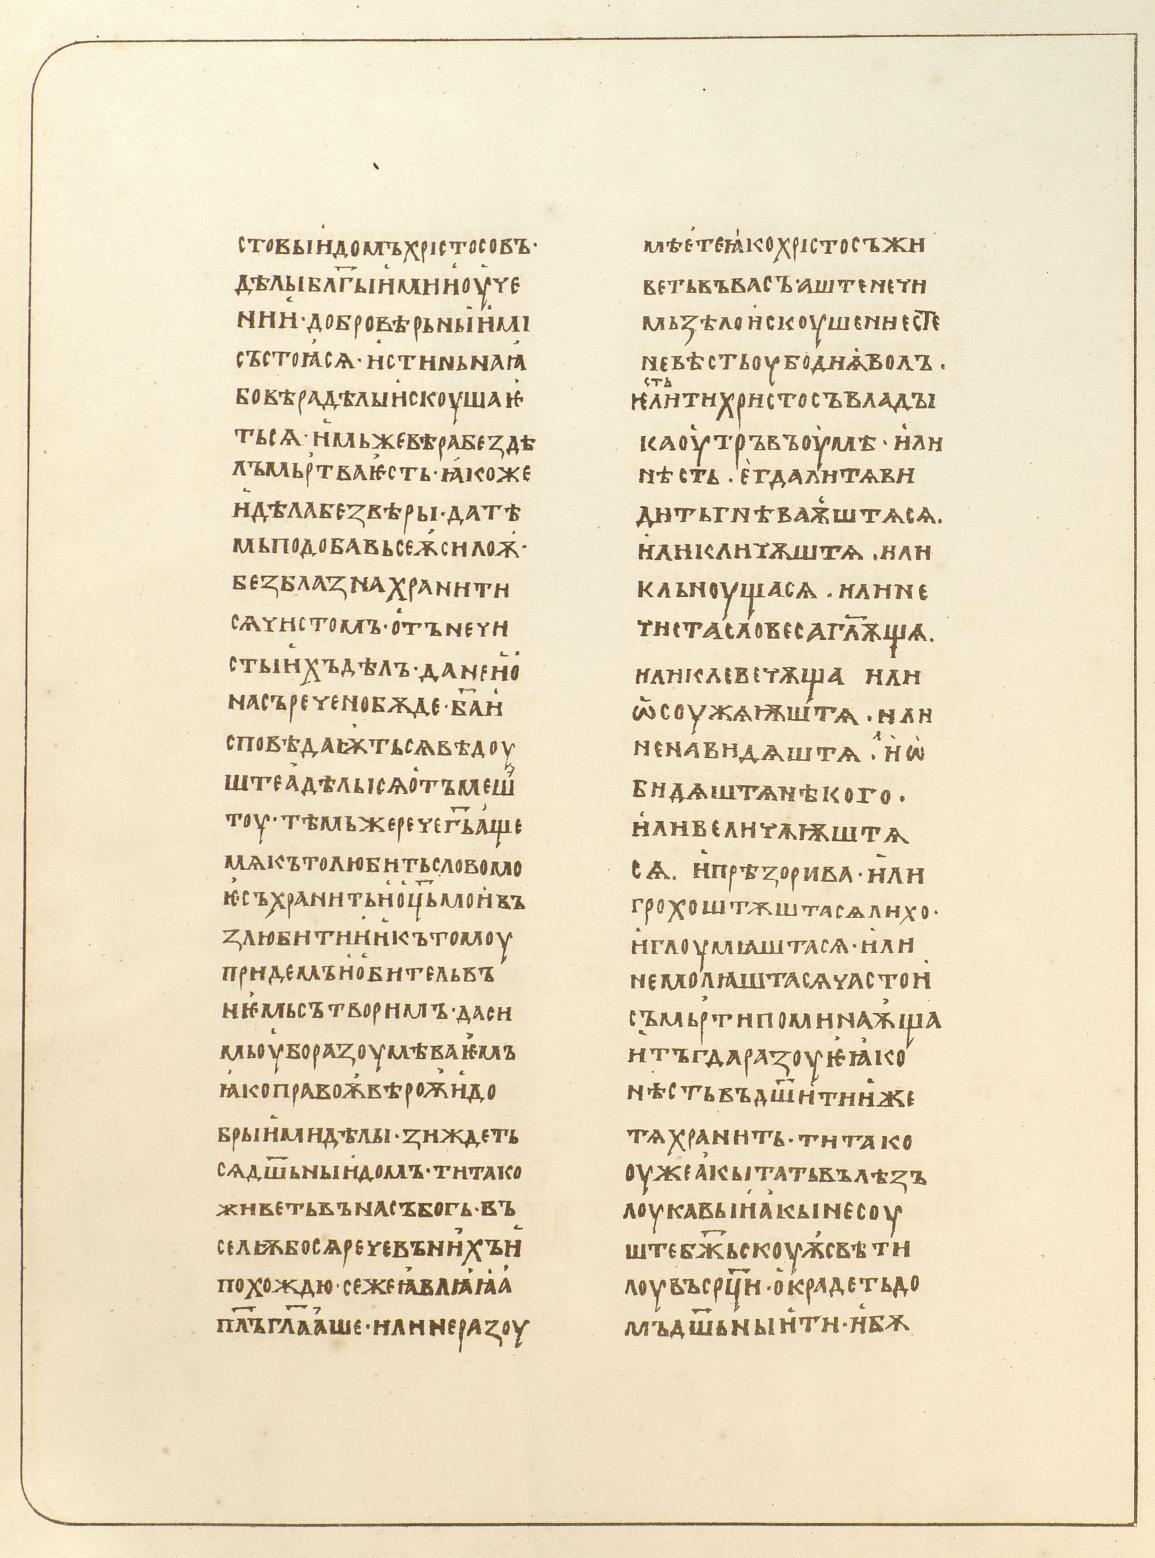 стовыи҆домъхрїстосовъ·
дѣлыбл҃гыи҆мии҆ѹ҆че
нии҆·добровѣрьныи҆мі
състоꙗсѧ·и҆стиньнаꙗ
бовѣрадѣлыи҆скѹшаѥ
тьсѧ·и҆мьжевѣрабездѣ
лъмьртваѥсть·ꙗкоже
и҆дѣлабезвѣры·датѣ
мьподобавьсеѫ҆силоѫ҆·
безблазнахранити
сѧчистомъ·о҆тънечи
стыи҆хъдѣлъ·данеи҆о҆
насъреченобѫде·бл҃аи҆
сповѣдаѭтьсѧвѣдоу
штеа҆дѣлысѧо҆тъмеш
тоу·тѣмьжеречегь҃аще
мѧкътолюбитьсловомо
ѥсъхранитьи҆оц҃ьмои҆въ
злюбитии҆и҆кътомоу
придемъи҆о҆бительвъ
нѥмьсътворимъ·даси
мьѹборазоумѣваѥмъ
ꙗкоправоѫ҆вѣроѫ҆и҆до
брыи҆мидѣлы·зиждеть
сѧдш҃ьныи҆домъ·титако
живетьвънасъбогь·въ
сельѭбосѧречевъни҆хъи҆
похождю·сежеꙗвлꙗꙗа҆
пл҃ъгл҃аа҆ше·илинеразоу
мѣе҆теꙗкохрїстосъжи
ветьвъвасъ·аштенечи
мьзѣлои҆скѹшениесте
невѣстьѹбодиꙗволъ.
ѥстьлитихристосъвлады
каѹ҆тръвъѹ҆мѣ·и҆ли
нѣсть·е҆гдалитѧви
дитьгнѣваѫ҆штѧсѧ.
и҆ликличѫштѧ.или
кльнѹщасѧ.илине
чистасловесагл҃ѫщѧ.
иликлевечѫща или
ѡ҆соужѧѭштѧ.или
ненавидѧштѧ.и҆лиѡ҆
бидѧштѧнѣкого.
и҆ливеличѧѭштѧ
сѧ. и҆прѣзорива·и҆ли
грохоштѫштасѧлихо·
и҆глоумꙗштасѧ·и҆ли
немолꙗштасѧчастои҆
съмьртипоминаѫ҆ща
и҆тъгдаразоуѥꙗко
нѣстьвъдш҃и҆тии҆же
тѧхранить·титако
ѹжеа҆кытатьвълѣзъ
лоукавыи҆а҆кынесоу
штебж҃ьскоуѫ҆свѣти
лоувъсрц҃и·о҆крадетьдо
мъдш҃ьныи҆ти·и҆бѫ